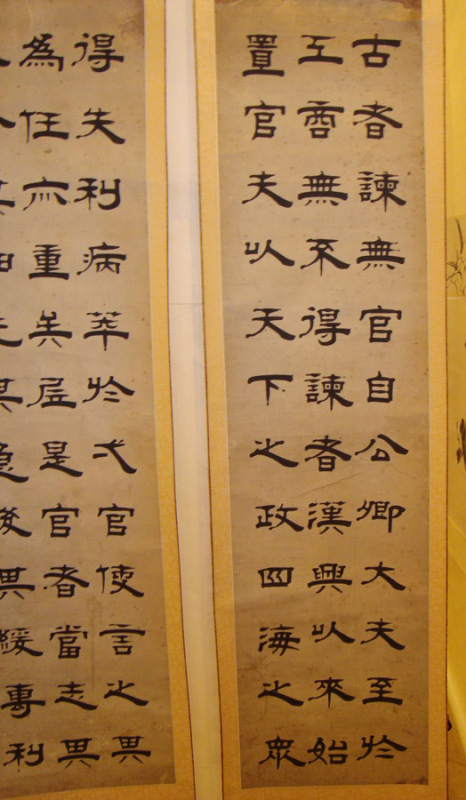 古者諫無官自公卿大夫至於
工商無不得諫者漢興以來始
置官夫以天下之政四海之衆
得失利病萃於弌官使言之其
為任亦重矣居是官者當志其
急後其緩專利